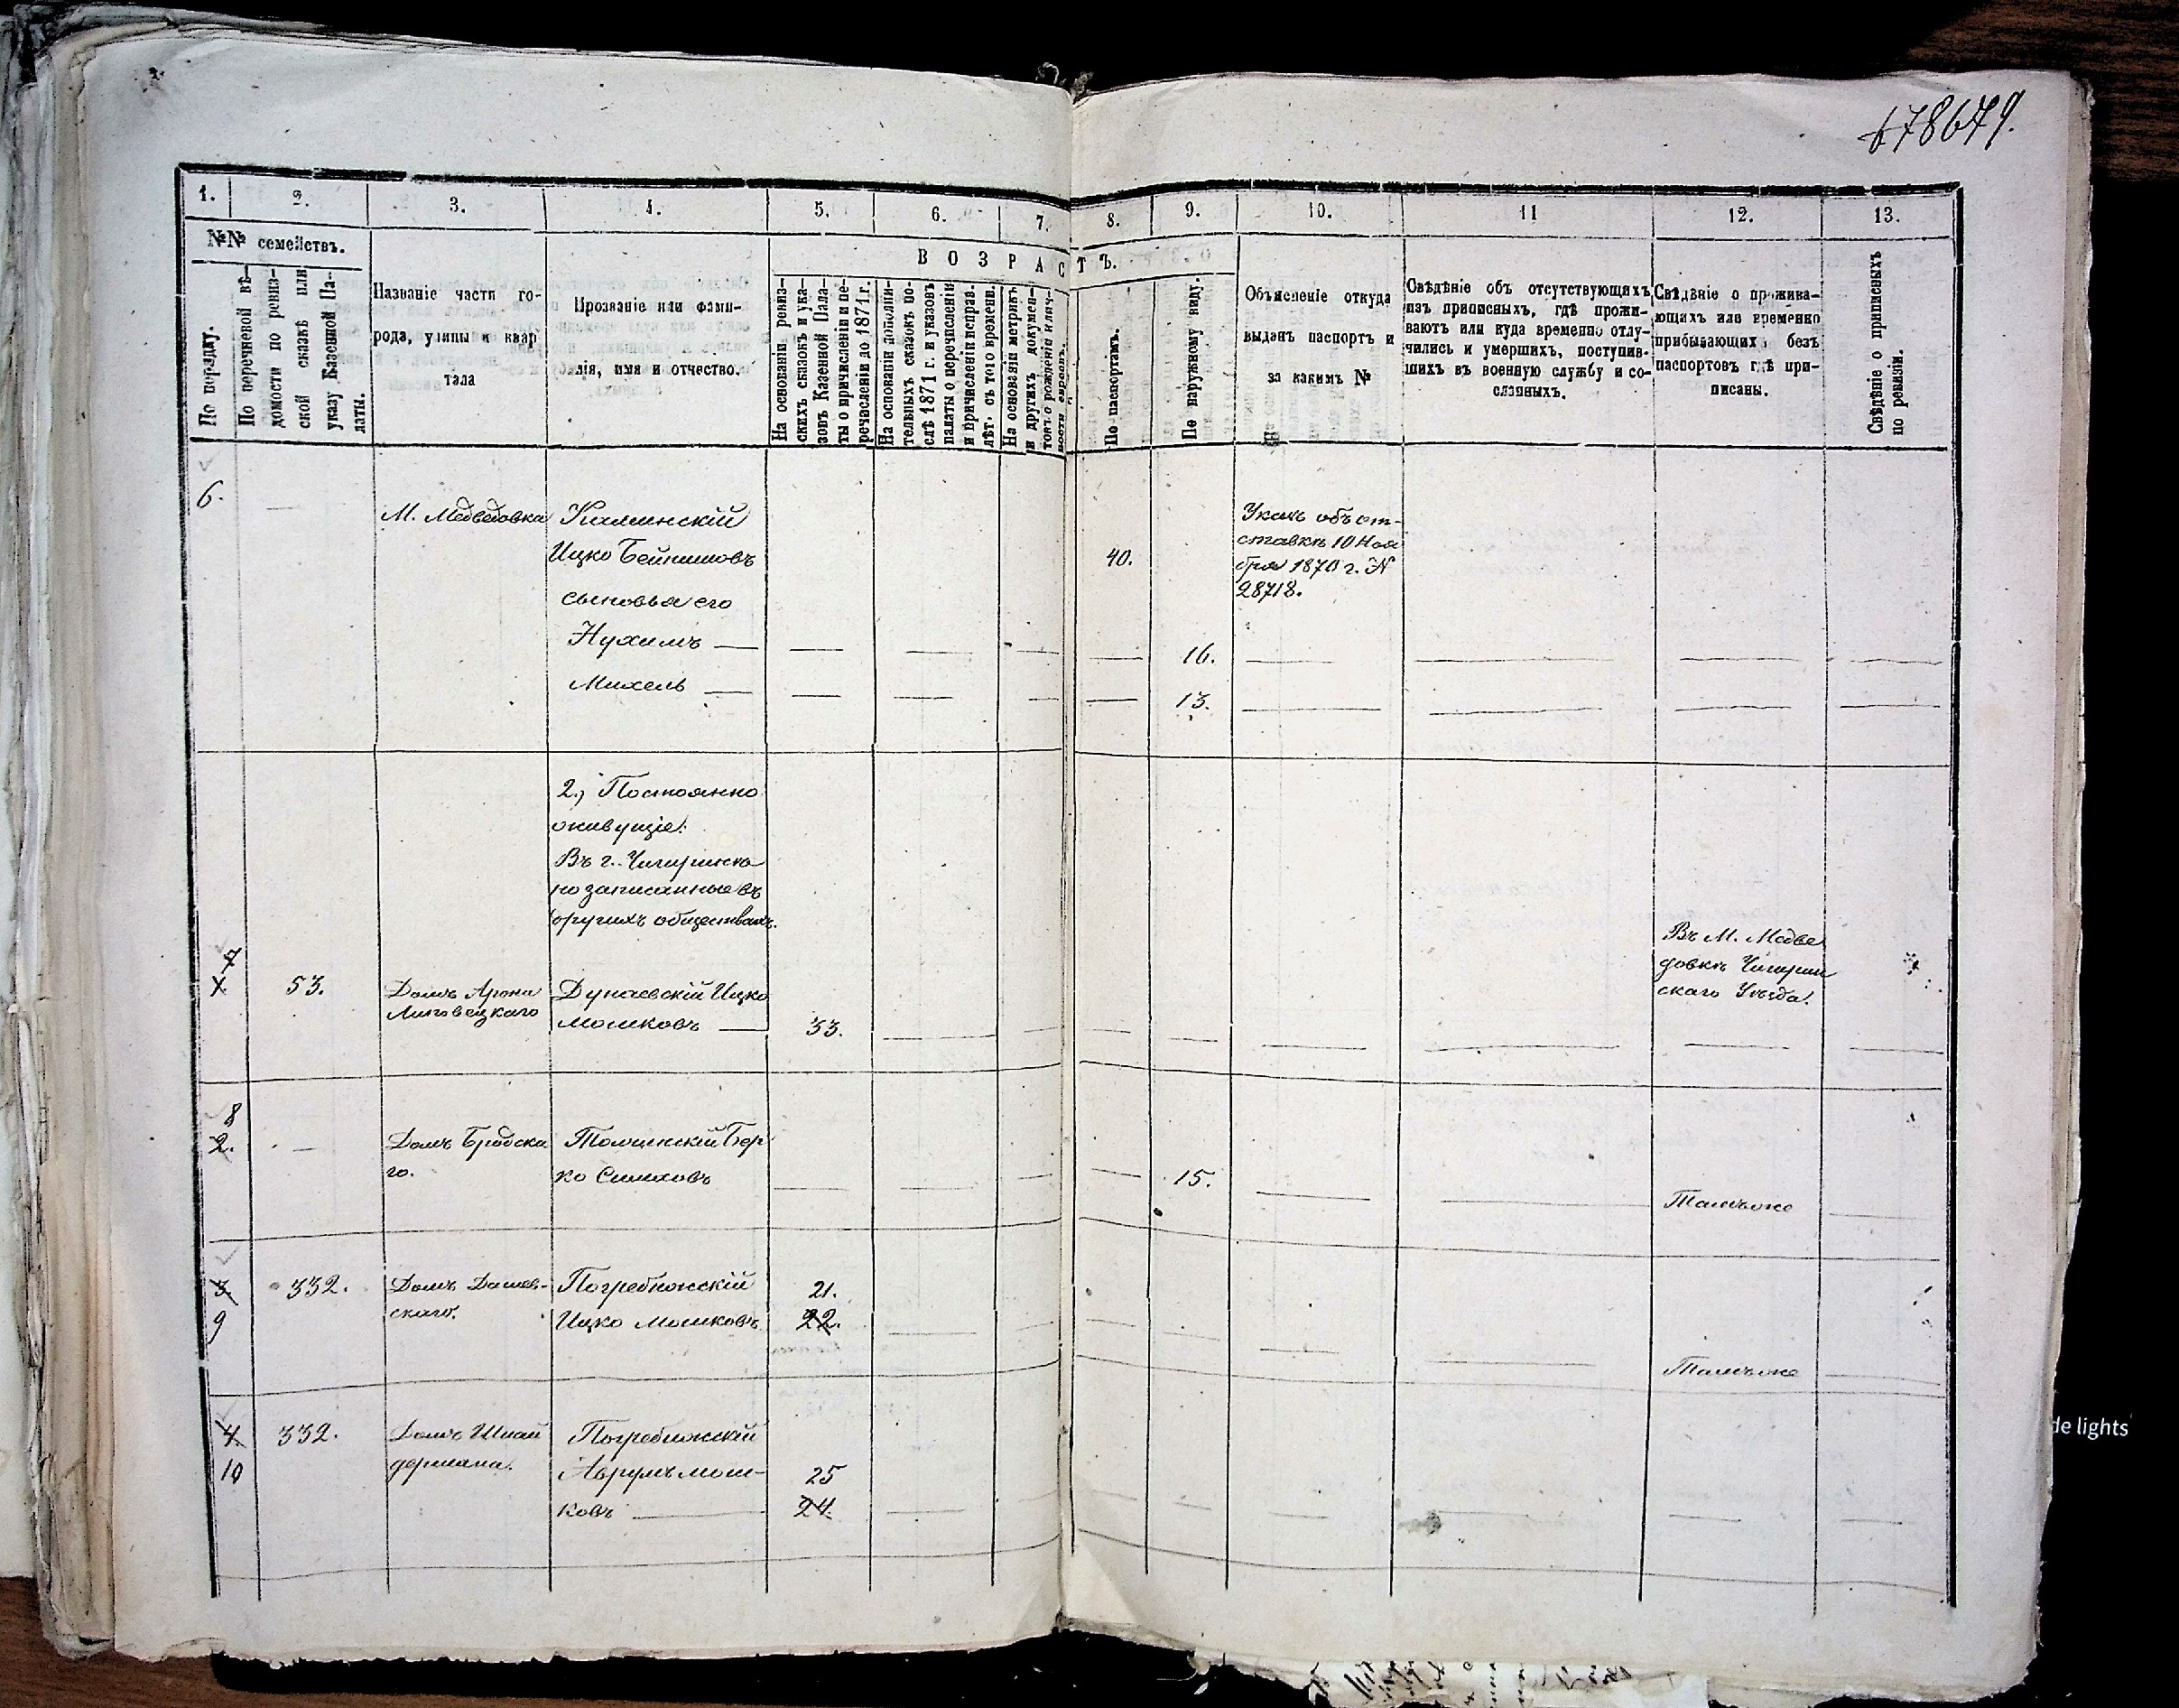 678679.
1. 2. 3. 4. 5. 6. 7. 8. 9. 10. 11 12. 13.
№№ семействъ.
По порядку.
По перечневой вѣ-
домости по ревиз-
ской сказкѣ или
указу Казенной Па-
латы.
Названіе части го-
рода, улицы и квар
тала
Прозваніе или фами-
лія, имя и отчество.
ВОЗРАСТЪ.
На основаніи ревиз-
скихъ сказокъ и ука-
зовъ Казенной Пала-
ты о причисленіи и пе-
речисленіи до 1871 г.
На основаніи дополни-
тельныхъ сказокъ по-
слѣ 1871 г. и указовъ
палаты о перечисленіи
и причисленіи исправ.
лѣт. съ того времени.
На основаніи метрикъ
и других докумен-
токъ о рожденіи
вости евреевъ.
По паспортамъ.
По наружному виду.
Объясненіе откуда
выданъ паспортъ и
за какимъ №
Свѣдѣніе объ отсутствующихъ
изъ приписныхъ, гдѣ прожи-
ваютъ или куда временно отлу-
чились и умершихъ, поступив-
шихъ въ военную службу и со-
сланныхъ.
Свѣдѣніе о прожива-
ющихъ или временно
прибывающихъ безъ
паспортовъ гдѣ при-
писаны.
Свѣдѣніе о приписныхъ
по ревизіи.
6.
М. Медведовка
Каминскій
Ицко Бейнишовъ
сыновья его
Нухимъ
Михель
40.
16.
13.
Указъ объ от-
ставкѣ 10 Ноя
бря 1870 г. №
28718.
2., Постоянно
живущіе:
Въ г. Чигиринѣ
но записанные въ
другихъ обществахъ.
7
1.
53.
Домъ Арона
Липовецкаго
Дунаевскій Ицко
Мошковъ
33.
Въ М. Медве
довкѣ Чигирин
скаго Уѣзда.
8
2.
Домъ Бродска
го.
Толчинскій Бер
ко Симховъ
15.
Тамъже
3.
9
332.
Домъ Дашев-
скаго.
Погребижскій
Ицко Мошковъ
21.
22.
Тамъже
4.
10
332.
Домъ Шнай
дермана.
Погребижскій
Аврумъ Мош-
ковъ
25
24.
de lights